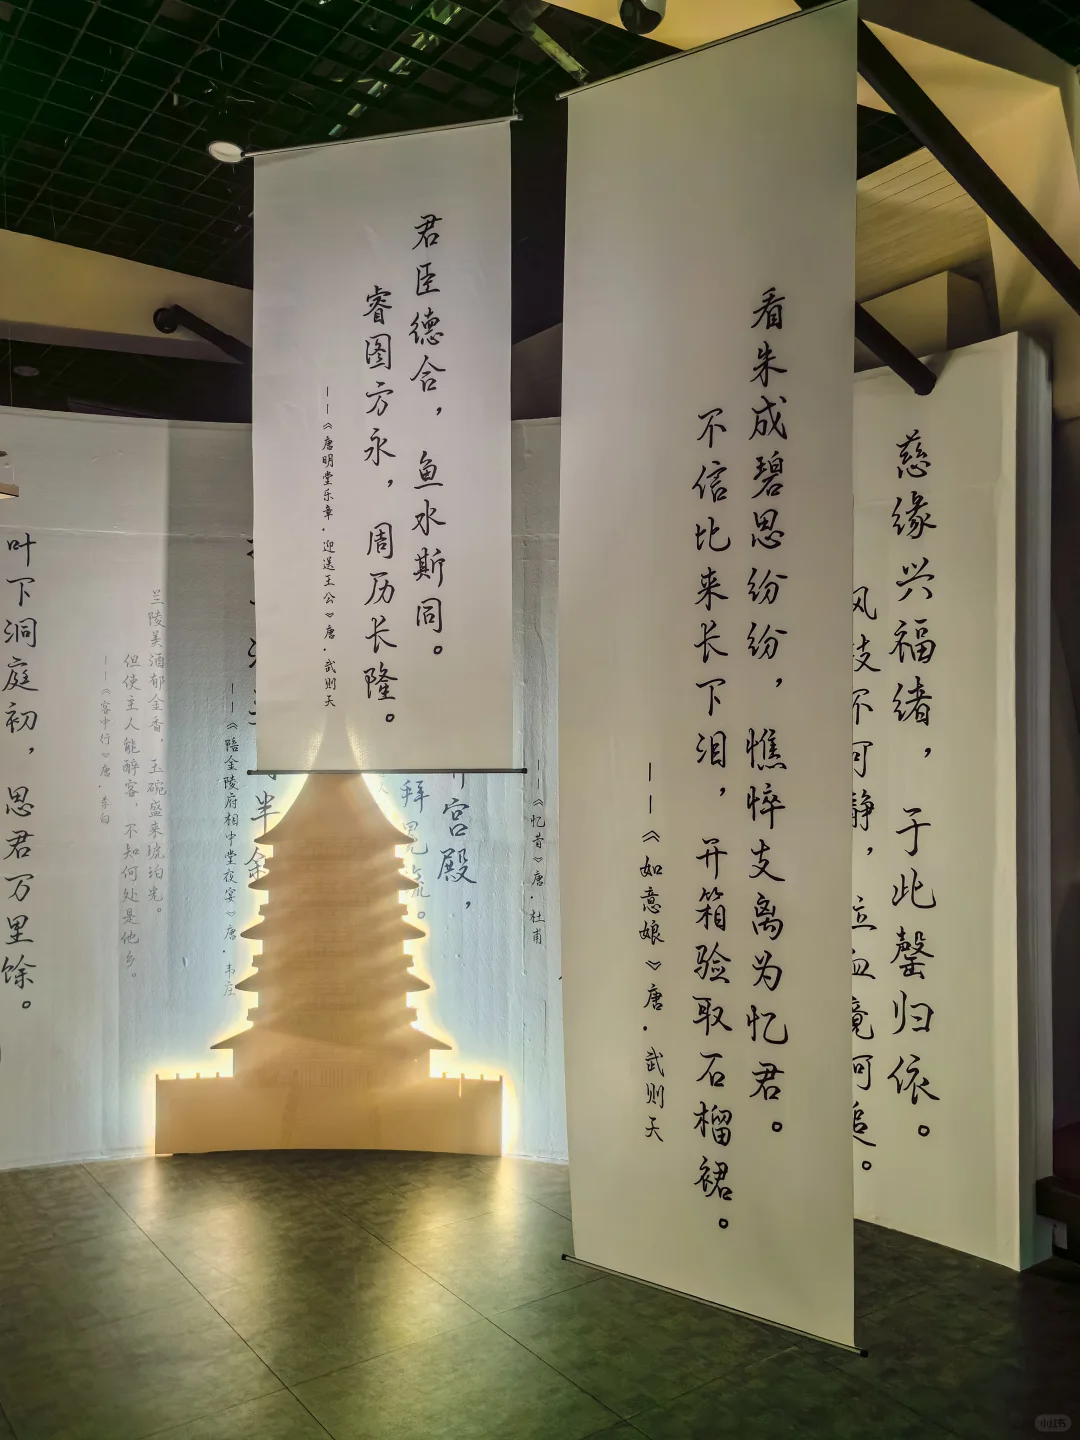 慈缘兴福绪，于此罄归依。
风枝不可静，泣血竟何追。
看朱成碧思纷纷，憔悴支离为忆君。
不信比来长下泪，开箱验取石榴裙。
——《如意娘》唐·武则天
君臣德合，鱼水斯同。
睿图方永，周历长隆。
——《唐明堂乐章·迎送王公》唐·武则天
——《忆昔》唐·杜甫
宫殿，
拜冕旒。
半
——《陪金陵府相中堂夜宴》唐·韦庄
兰陵美酒郁金香，玉碗盛来琥珀光。
但使主人能醉客，不知何处是他乡。
——《客中行》唐·李白
叶下洞庭初，思君万里馀。
小红书